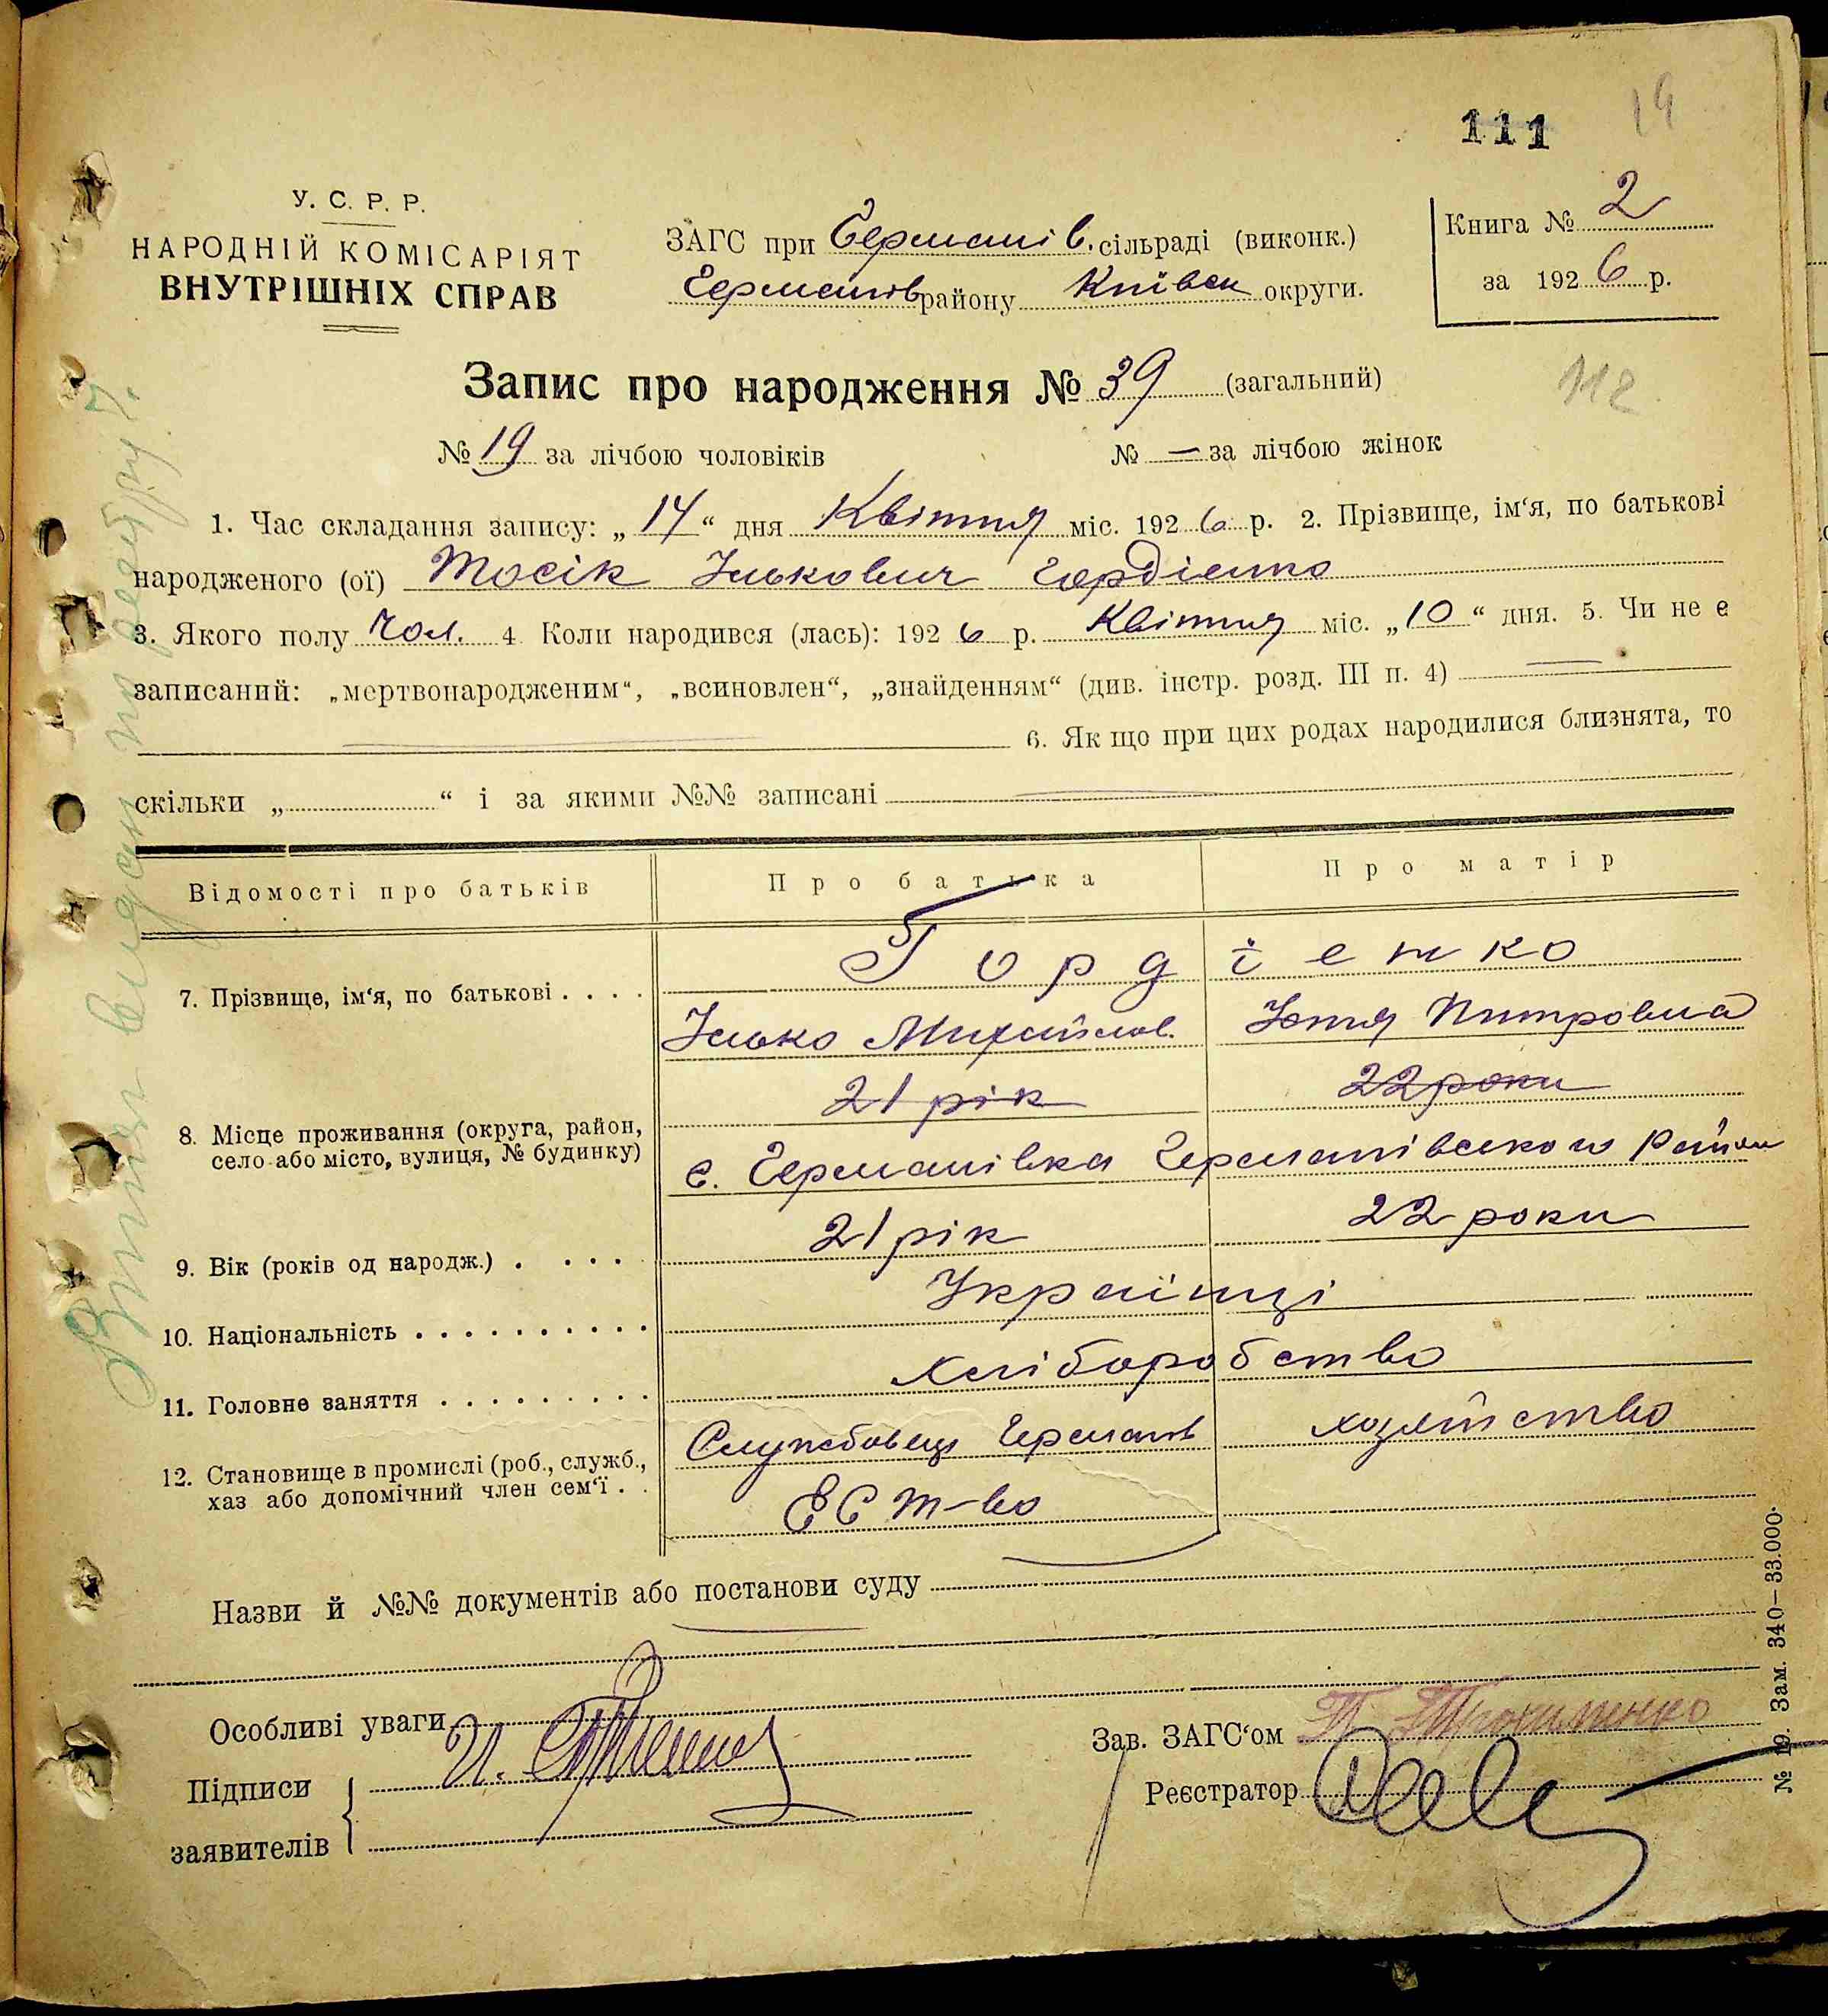 111 19
У. С. Р. Р.
НАРОДНІЙ КОМІСАРІЯТ
ВНУТРІШНІХ СПРАВ
ЗАГС при Германів. сільраді (виконк.)
Германів району Київськ округи.
Книга № 2
за 1926 р.
Запис про народження № 39 (загальний)
112
№ 19 за лічбою чоловіків № — за лічбою жінок
1. Час складання запису: „14“ дня Квітня міс. 1926 р. 2. Прізвище, ім‘я, по батькові
народженого (ої) Тосік Ількович Гордієнко
3. Якого полу Чол. 4 Коли народився (лась): 1926 р. Квітня міс. „10“ дня. 5. Чи не є
записаний: „мертвонародженим“, „всиновлен“, „знайденням“ (див. інстр. розд. III п. 4)
6. Як що при цих родах народилися близнята, то
скільки „ “ і за якими №№ записані
Відомості про батьків Про батька Про матір
Гордієнко
7. Прізвище, ім‘я, по батькові . . . .
Ілько Михайлов. Петровна
21 рік 22 роки
8. Місце проживання (округа, район,
село або місто, вулиця, № будинку)
с. Германівка Германівського Району
21 рік 22 роки
9. Вік (років од народж.) . . . .
Українці
10. Національність . . . . . . . . . .
Хліборобство
11. Головне заняття . . . . . . . . .
Службовець Германів хозяйство
12. Становище в промислі (роб., служб.,
хаз або допомічний член сем‘ї . .
ЕСТ-во
Назви й №№ документів або постанови суду
Особливі уваги
Зав. ЗАГС‘ом Т. Трохименко
Підписи
заявителів
Реєстратор
№ 19. Зам. 340—33.000.